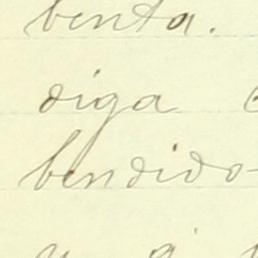 benta.
diga
bendido-